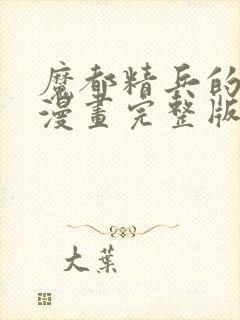 魔都精兵的
漫畫完整版
大葉